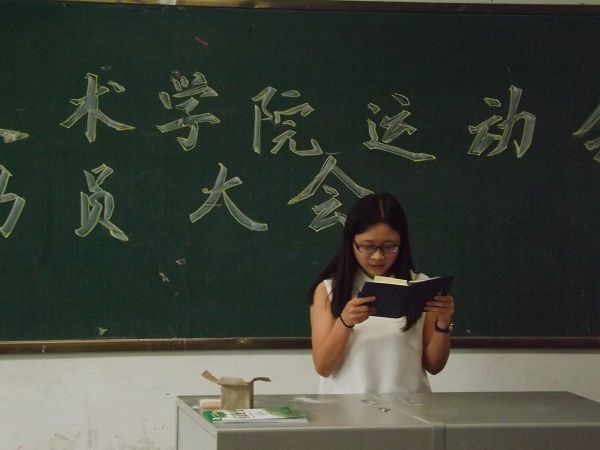 术学院运动会
动员大会